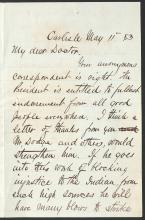 Carlisle May 11th 83
My dear Doctor.
Your anonymous
correspondent is right. The
President is entitled to fullest
endorsement from all good
people everywhere. I think a
letter of thanks from you
Mr. Dodge and others, would
strengthen him. If he goes
into this work of blocking
injustice to the Indian, from
such high sources he will
have many blows to strike